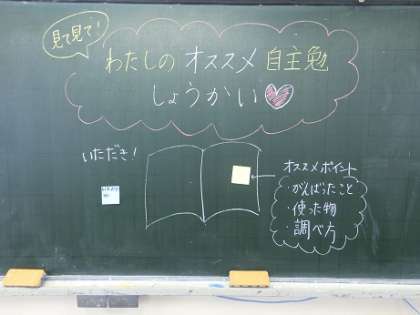 見て見て!
わたしの オススメ 自主勉
しょうかい
いただき!
オススメポイント
・がんばったこと
・使った物
・調べ方